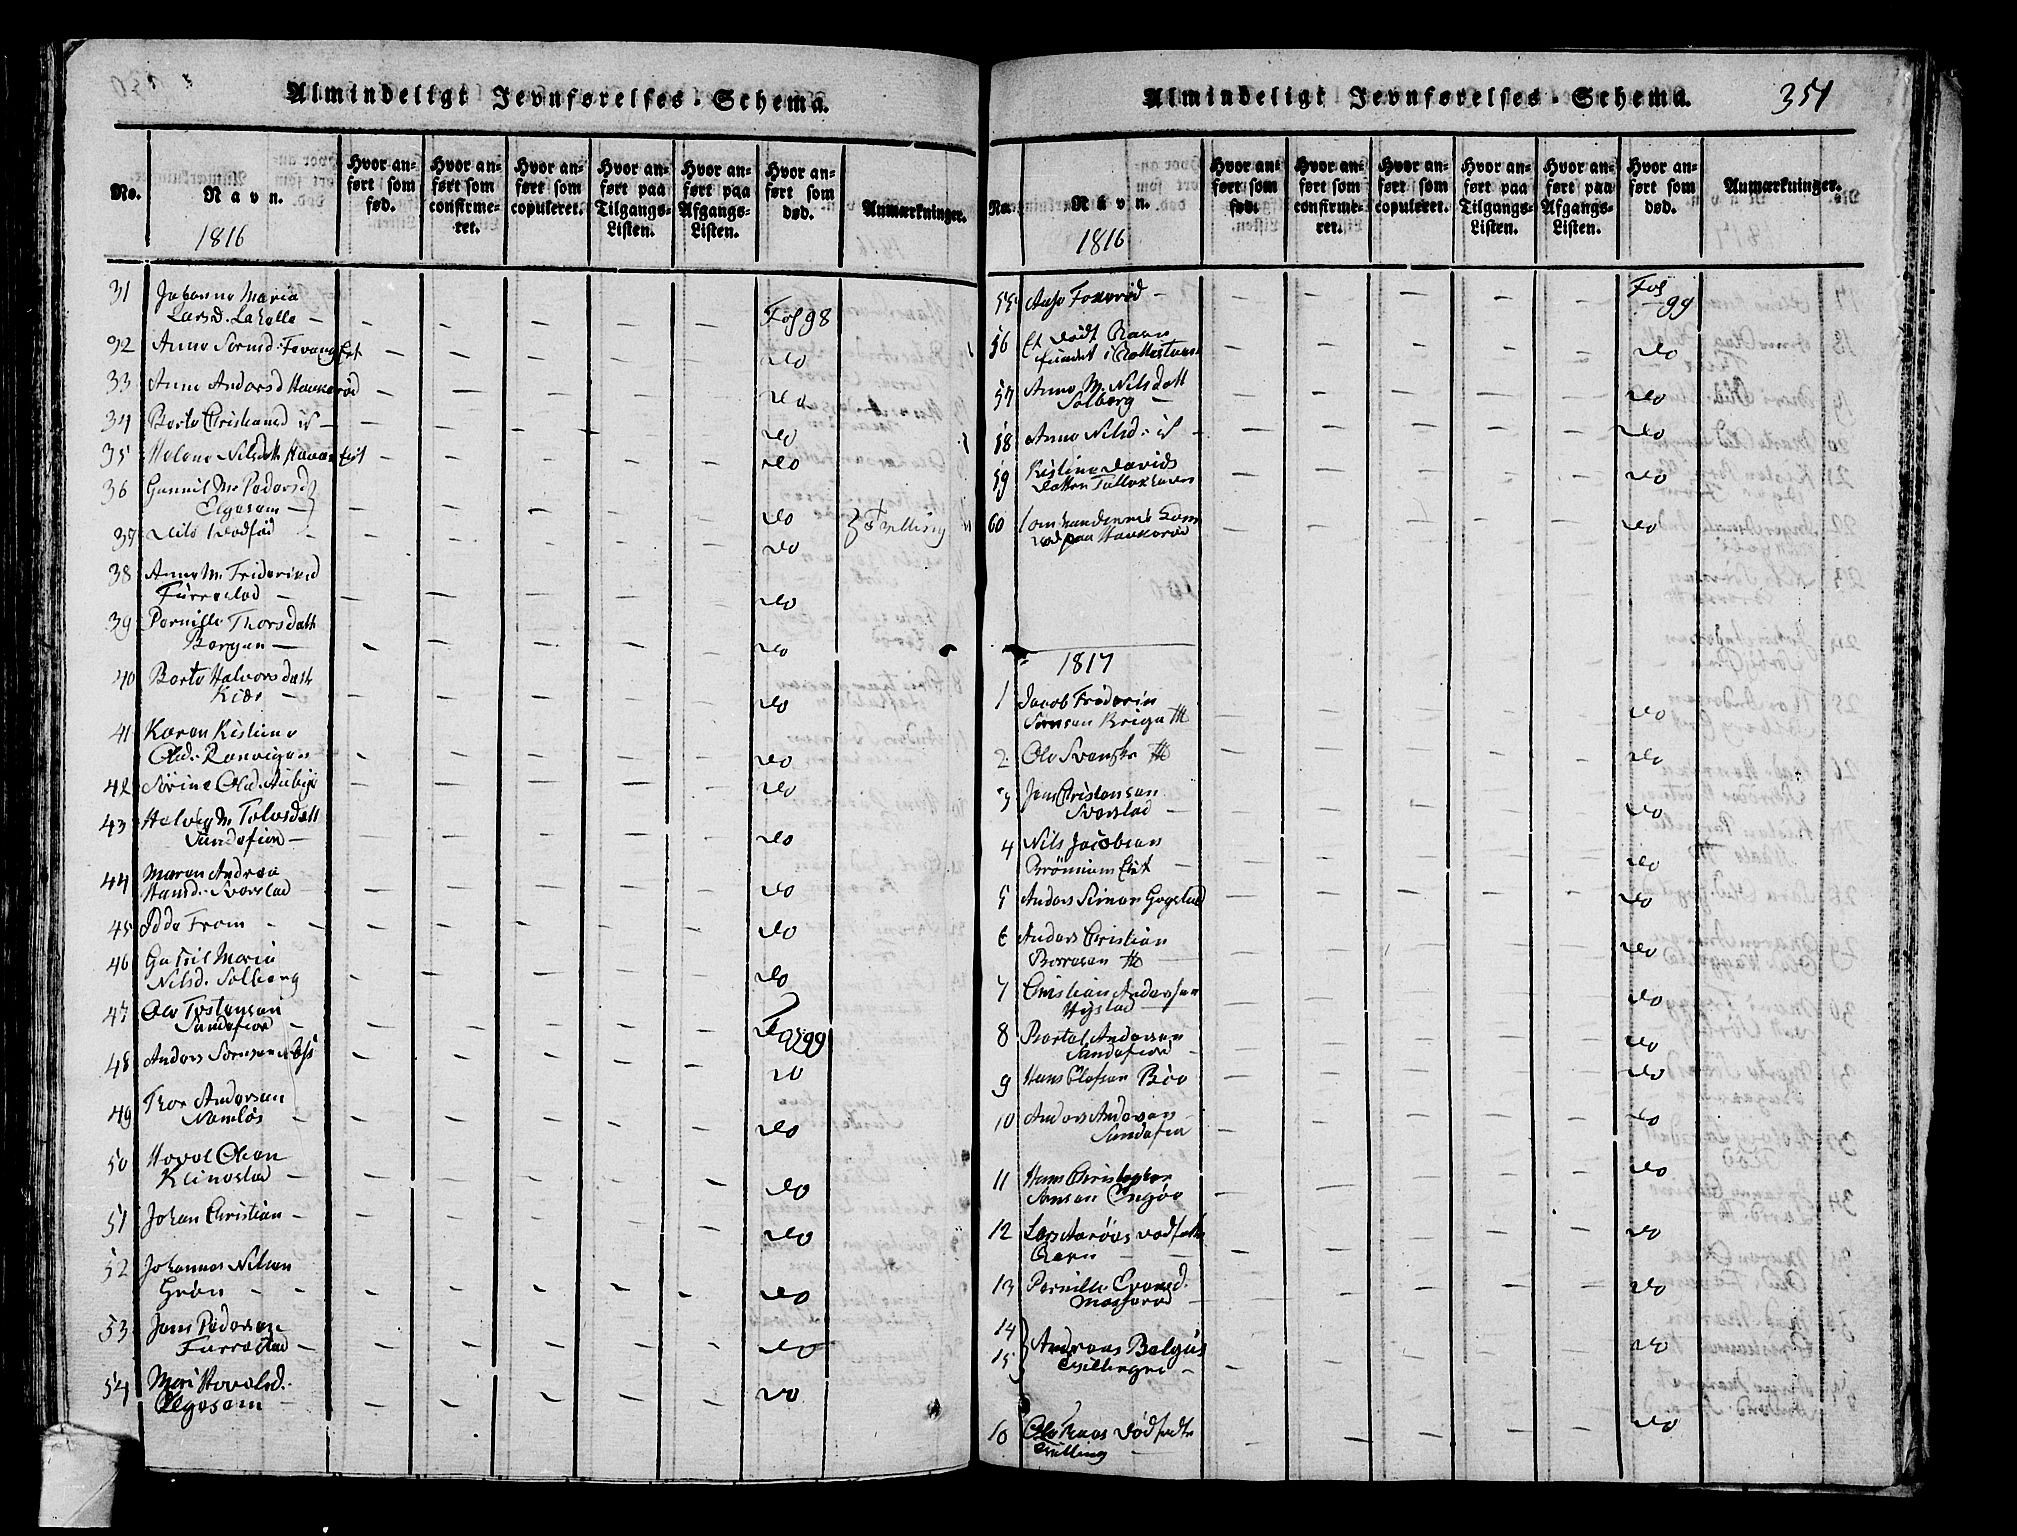 Almindeligt Jevnførelses-Schema.
No.
Navn.
Hvor anført som fød.
Hvor anført som confirmeret.
Hvor anført som copuleret.
Hvor anført paa Tilgangs-Listen.
Hvor anført paa Afgangs-Listen.
Hvor anført som død.
Anmærkninger.
1816
31 Johanne Maria
Larsd. Lahelle — Fol 98
32 Anne Sørensd. Fevang Eiet do
33 Anne Andersd Haukerød do
34 Berte Christiansd id do
35 Helene Nilsdatt Eiet do
36 Gunnil M. Pedersd
Elgesem do
37 Nils dødfød do Tvilling
38 Anne M. Friderichsd
Furrestad do
39 Pernille Thorsdatt
Bergan do
40 Berte Halvorsdatt
Kiær do
41 Karen Kistine
Olsd. Ranvigen do
42 Sørine Olsd. do
43 Helvig M. Tolvsdatt
Sandefior do
44 Maren Andrea
Hansd. Sverstad do
45 do
46 Maria
Nilsd. Solberg do
47 Ole Tostensen
Sandefior Fol 99
48 Anders Sørensen do
49 Thor Andersen
Namløs do
50 Hovel Olsen
Klinestad do
51 Johan Christian do
52 Johannes Nilsen
Grøn do
53 Jens Pedersen
Furrestad do
54 Mari Hovelsd.
Elgesem do
Almindeligt Jevnførelses-Schema. 351
No.
Navn.
Hvor anført som fød.
Hvor anført som confirmeret.
Hvor anført som copuleret.
Hvor anført paa Tilgangs-Listen.
Hvor anført paa Afgangs-Listen.
Hvor anført som død.
Anmærkninger.
1816
55 Fol 99
56 Et dødt Barn
fundet i do
57 Anne M. Nilsdatt
Solberg do
58 Anne Nilsd. id do
59 Kistine Davids
Datter do
60
paa Haukerød do
1817
1 Jacob Friderich
Sørensen do
2 Ole Svenske do
3 Jens Christensen
Sverstad do
4 Nils Jacobsen
Eiet do
5 Anders Simon Gogstad do
6 Anders Christian
Borresen do
7 Christian Andersen
Hystad do
8 Bertel Andersen
Sandefior do
9 Hans Olafsen do
10 Anders Andersen
Sandefior do
11 Hans Christopher
Jensen do
12 Lars dødfødte
Barn do
13 Pernille Evensd.
do
14
15 Andreas
Tvillinger do
16 Ole dødfødte
Tvilling do